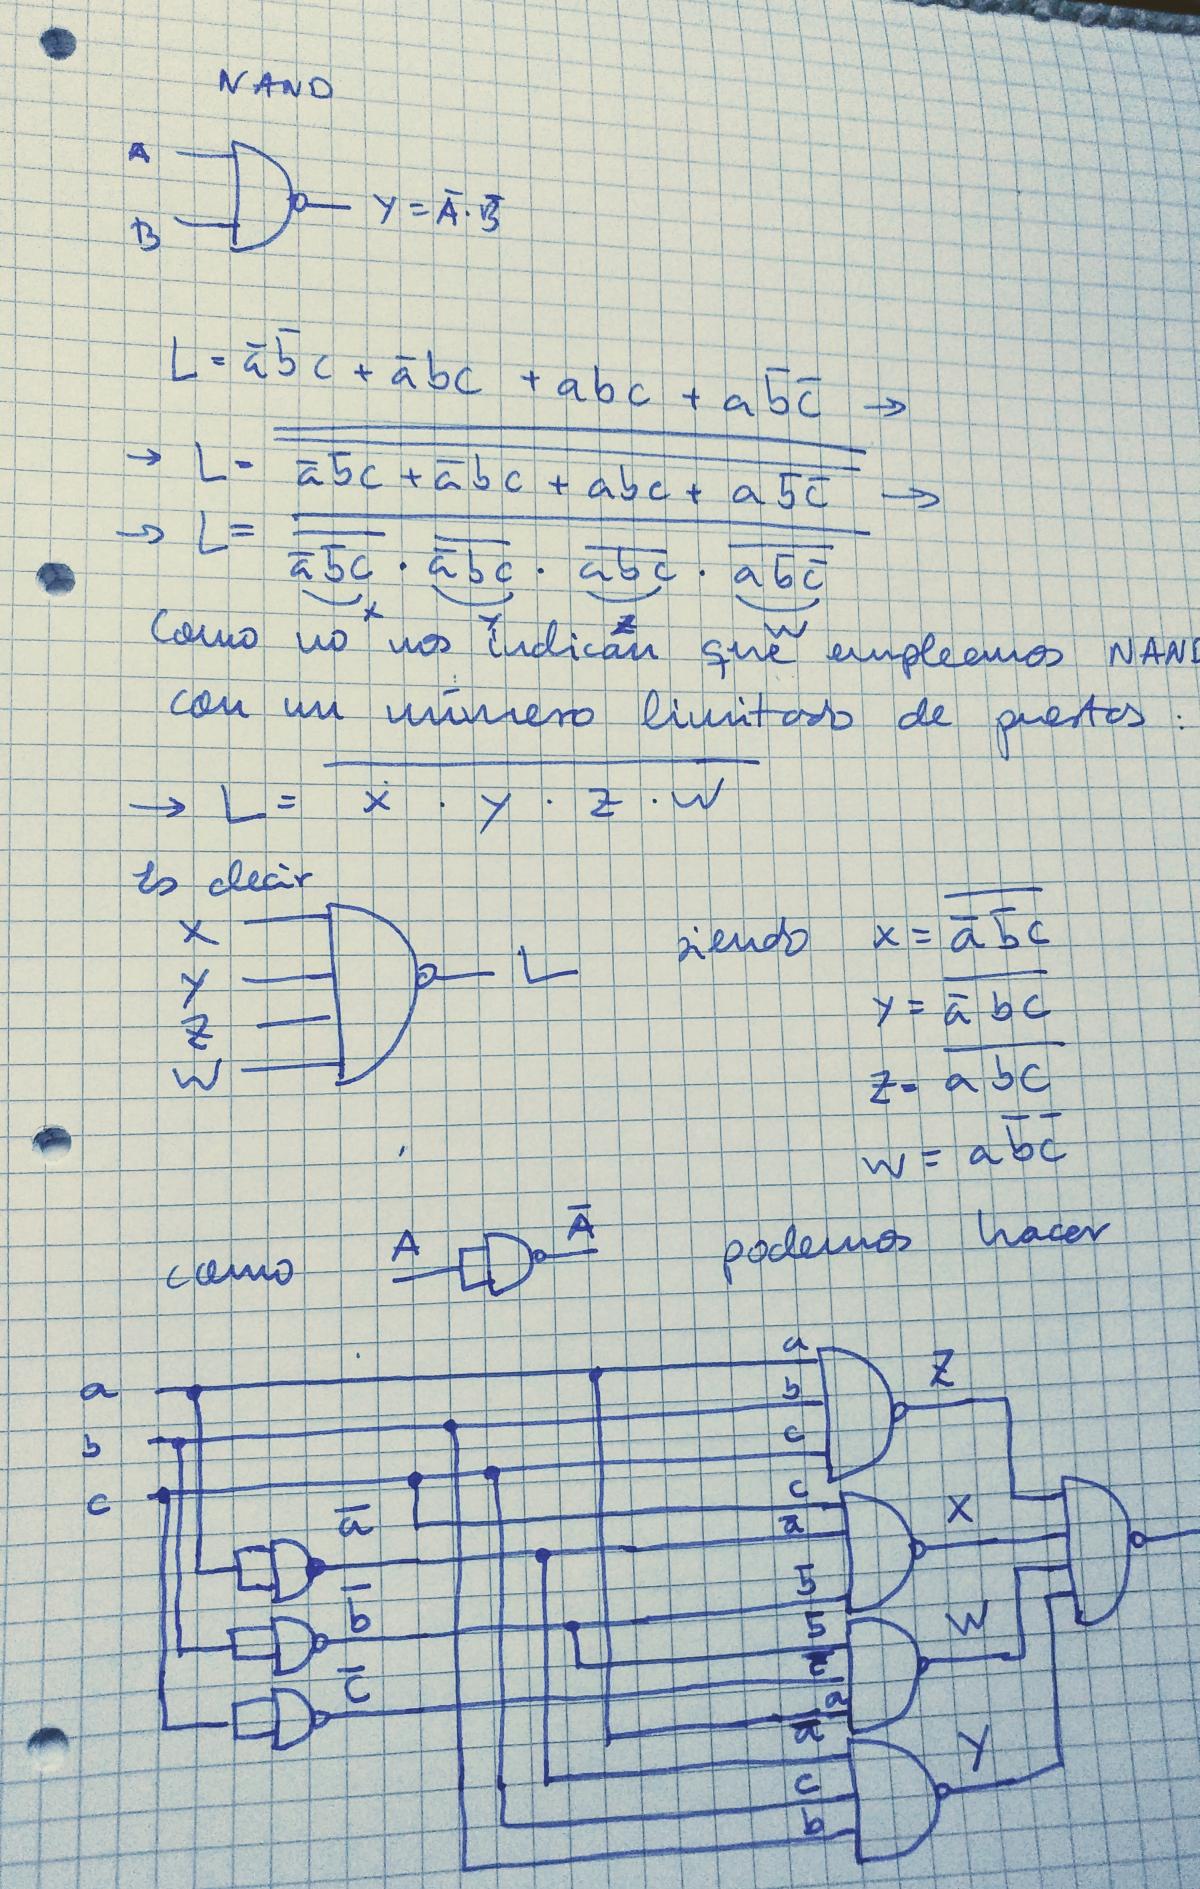 NAND
A
B
Y = Ā·B̄
L = āb̄c + ābc + abc + ab̄c̄ →
→ L = āb̄c + ābc + abc + ab̄c̄ →
→ L = āb̄c · ābc · abc · ab̄c̄
x y z w
Como no nos indican que empleemos NAND
con un número limitado de puertas :
→ L = x · y · z · w
Es decir
X
Y
Z
W
L
siendo x = āb̄c
y = ābc
z = abc
w = ab̄c̄
como A Ā podemos hacer
a
b
c
ā
b̄
c̄
a
b
c
Z
c
ā
b̄
X
b̄
c̄
a
W
ā
c
b
Y